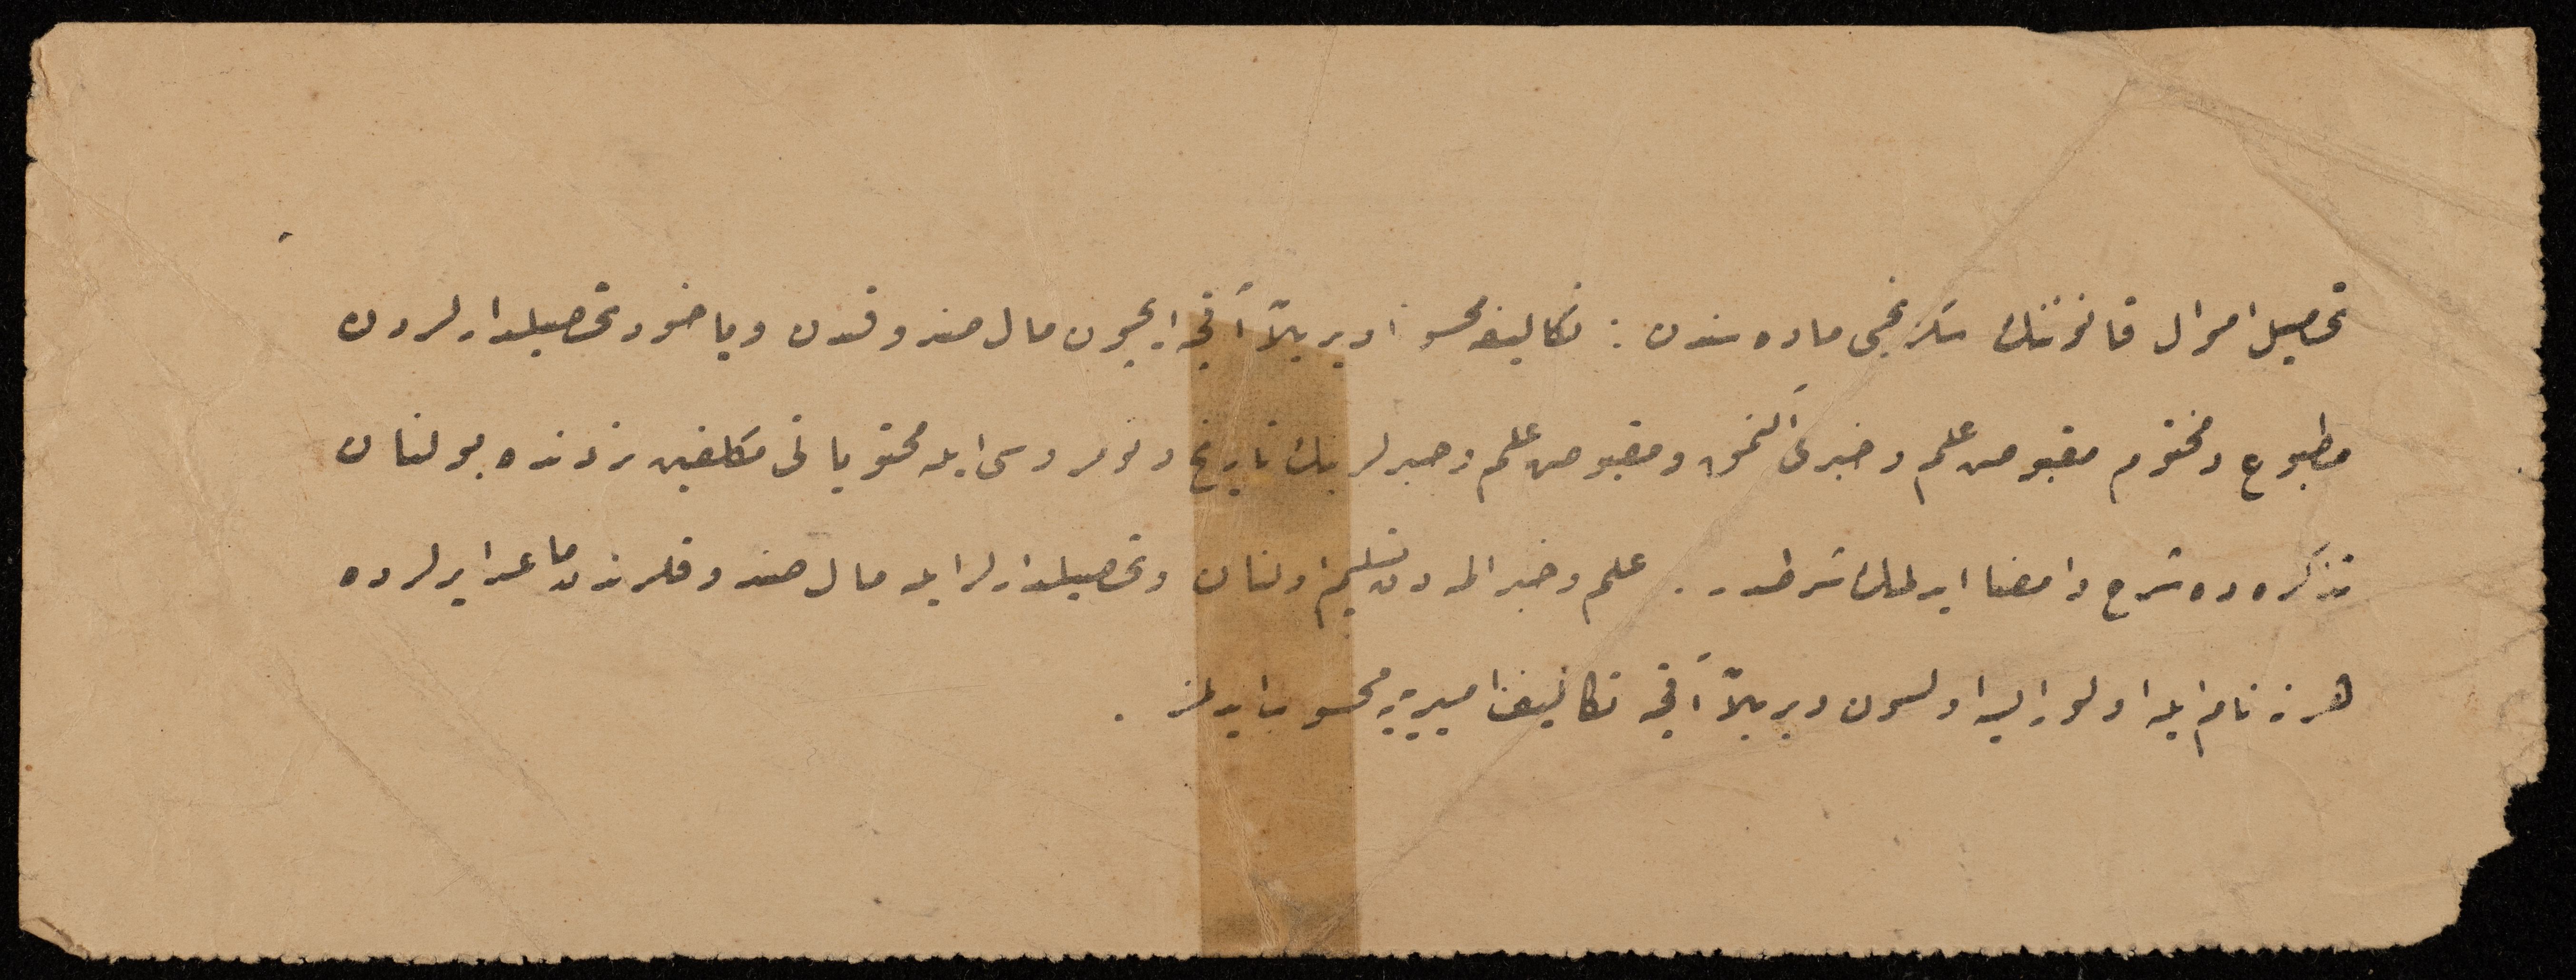 تحصیل اموال قانوننك سكزنجی ماده سندن : تكالیفه محسوبا ویریلان آقچه ایچون مال صندوقندن ویاخود تحصیلدارلردن
مطبوع ومختوم مقبوض علم وخبری آلنمق ومقبوض علم وخبرلرینك تاریخ ونومروسی ایله محتویاتی مكلفین نزدنده بولنان
تذكره ده شرح وامضا ایدلمك شرطدر . علم وخبر المه دن تسلیم اولنان وتحصیلدارلر ایله مال صندوقلرندن ماعدا یرلرده
هر نه نام ایله اولور ایسه اولسون ویریلان آقچه تكالیف امیریه یه محسوب ایدلمز .